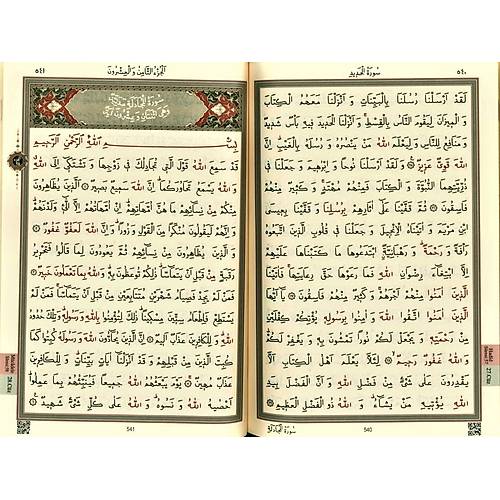 ٥٤٠
سورة الحديد
لَقَدْ اَرْسَلْنَا رُسُلَنَا بِالْبَيِّنَاتِ وَ اَنْزَلْنَا مَعَهُمُ الْكِتَابَ
وَ الْمِيزَانَ لِيَقُومَ النَّاسُ بِالْقِسْطِ وَ اَنْزَلْنَا الْحَدِيدَ فِيهِ بَأْسٌ شَدِيدٌ
وَ مَنَافِعُ لِلنَّاسِ وَ لِيَعْلَمَ اللّٰهُ مَنْ يَنْصُرُهُ وَ رُسُلَهُ بِالْغَيْبِ اِنَّ
اللّٰهَ قَوِيٌّ عَزِيزٌ وَ لَقَدْ اَرْسَلْنَا نُوحًا وَ اِبْرٰهِيمَ وَ جَعَلْنَا فِي
ذُرِّيَّتِهِمَا النُّبُوَّةَ وَ الْكِتَابَ فَمِنْهُمْ مُهْتَدٍ وَ كَثِيرٌ مِنْهُمْ
فَاسِقُونَ ثُمَّ قَفَّيْنَا عَلٰى اٰثَارِهِمْ بِرُسُلِنَا وَ قَفَّيْنَا بِعِيسَى
ابْنِ مَرْيَمَ وَ اٰتَيْنَاهُ الْاِنْجِيلَ وَ جَعَلْنَا فِي قُلُوبِ الَّذِينَ اتَّبَعُوهُ
رَأْفَةً وَ رَحْمَةً وَ رَهْبَانِيَّةً ابْتَدَعُوهَا مَا كَتَبْنَاهَا عَلَيْهِمْ
اِلَّا ابْتِغَاءَ رِضْوَانِ اللّٰهِ فَمَا رَعَوْهَا حَقَّ رِعَايَتِهَا فَاٰتَيْنَا
الَّذِينَ اٰمَنُوا مِنْهُمْ اَجْرَهُمْ وَ كَثِيرٌ مِنْهُمْ فَاسِقُونَ يَا اَيُّهَا
الَّذِينَ اٰمَنُوا اتَّقُوا اللّٰهَ وَ اٰمِنُوا بِرَسُولِهِ يُؤْتِكُمْ كِفْلَيْنِ
مِنْ رَحْمَتِهِ وَ يَجْعَلْ لَكُمْ نُورًا تَمْشُونَ بِهِ وَ يَغْفِرْ لَكُمْ
وَ اللّٰهُ غَفُورٌ رَحِيمٌ لِئَلَّا يَعْلَمَ اَهْلُ الْكِتَابِ اَلَّا
يَقْدِرُونَ عَلٰى شَيْءٍ مِنْ فَضْلِ اللّٰهِ وَ اَنَّ الْفَضْلَ بِيَدِ
اللّٰهِ يُؤْتِيهِ مَنْ يَشَاءُ وَ اللّٰهُ ذُو الْفَضْلِ الْعَظِيمِ
سورة المجادلة
540
الجزء الثامن والعشرون
٥٤١
بِسْمِ اللّٰهِ الرَّحْمٰنِ الرَّحِيمِ
قَدْ سَمِعَ اللّٰهُ قَوْلَ الَّتِي تُجَادِلُكَ فِي زَوْجِهَا وَ تَشْتَكِي اِلَى اللّٰهِ
وَ اللّٰهُ يَسْمَعُ تَحَاوُرَكُمَا اِنَّ اللّٰهَ سَمِيعٌ بَصِيرٌ اَلَّذِينَ يُظَاهِرُونَ
مِنْكُمْ مِنْ نِسَائِهِمْ مَا هُنَّ اُمَّهَاتِهِمْ اِنْ اُمَّهَاتُهُمْ اِلَّا الّٰئِي وَلَدْنَهُمْ
وَ اِنَّهُمْ لَيَقُولُونَ مُنْكَرًا مِنَ الْقَوْلِ وَ زُورًا وَ اِنَّ اللّٰهَ لَعَفُوٌّ غَفُورٌ
وَ الَّذِينَ يُظَاهِرُونَ مِنْ نِسَائِهِمْ ثُمَّ يَعُودُونَ لِمَا قَالُوا فَتَحْرِيرُ
رَقَبَةٍ مِنْ قَبْلِ اَنْ يَتَمَاسَّا ذٰلِكُمْ تُوعَظُونَ بِهِ وَ اللّٰهُ بِمَا تَعْمَلُونَ خَبِيرٌ
فَمَنْ لَمْ يَجِدْ فَصِيَامُ شَهْرَيْنِ مُتَتَابِعَيْنِ مِنْ قَبْلِ اَنْ يَتَمَاسَّا فَمَنْ لَمْ
يَسْتَطِعْ فَاِطْعَامُ سِتِّينَ مِسْكِينًا ذٰلِكَ لِتُؤْمِنُوا بِاللّٰهِ وَ رَسُولِهِ وَ تِلْكَ
حُدُودُ اللّٰهِ وَ لِلْكَافِرِينَ عَذَابٌ اَلِيمٌ اِنَّ الَّذِينَ يُحَادُّونَ اللّٰهَ وَ رَسُولَهُ كُبِتُوا كَمَا
كُبِتَ الَّذِينَ مِنْ قَبْلِهِمْ وَ قَدْ اَنْزَلْنَا اٰيَاتٍ بَيِّنَاتٍ وَ لِلْكَافِرِينَ
عَذَابٌ مُهِينٌ يَوْمَ يَبْعَثُهُمُ اللّٰهُ جَمِيعًا فَيُنَبِّئُهُمْ بِمَا عَمِلُوا
اَحْصٰيهُ اللّٰهُ وَ نَسُوهُ وَ اللّٰهُ عَلٰى كُلِّ شَيْءٍ شَهِيدٌ
541